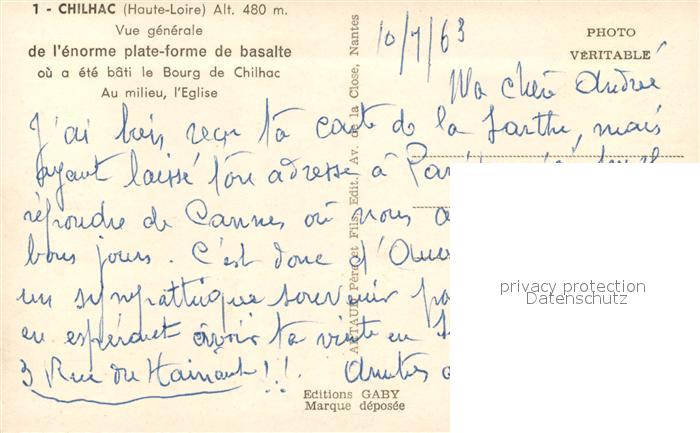 1 - CHILHAC (Haute-Loire) Alt. 480 m.
Vue générale
de l'énorme plate-forme de basalte
où a été bâti le Bourg de Chilhac
Au milieu, l'Eglise
PHOTO
VÉRITABLE
10/7/63
Ma chère Andrée
J'ai bien reçu ta carte de la Sarthe, mais
ayant laissé ton adresse à
répondre de Cannes où nous
bons jours. C'est donc d'
un sympathique souvenir
en espérant avoir ta visite en
3 Rue du Hainaut !!
ARTAUD Père et Fils, Edit., Av. de la Close, Nantes
Editions GABY
Marque déposée
privacy protection
Datenschutz